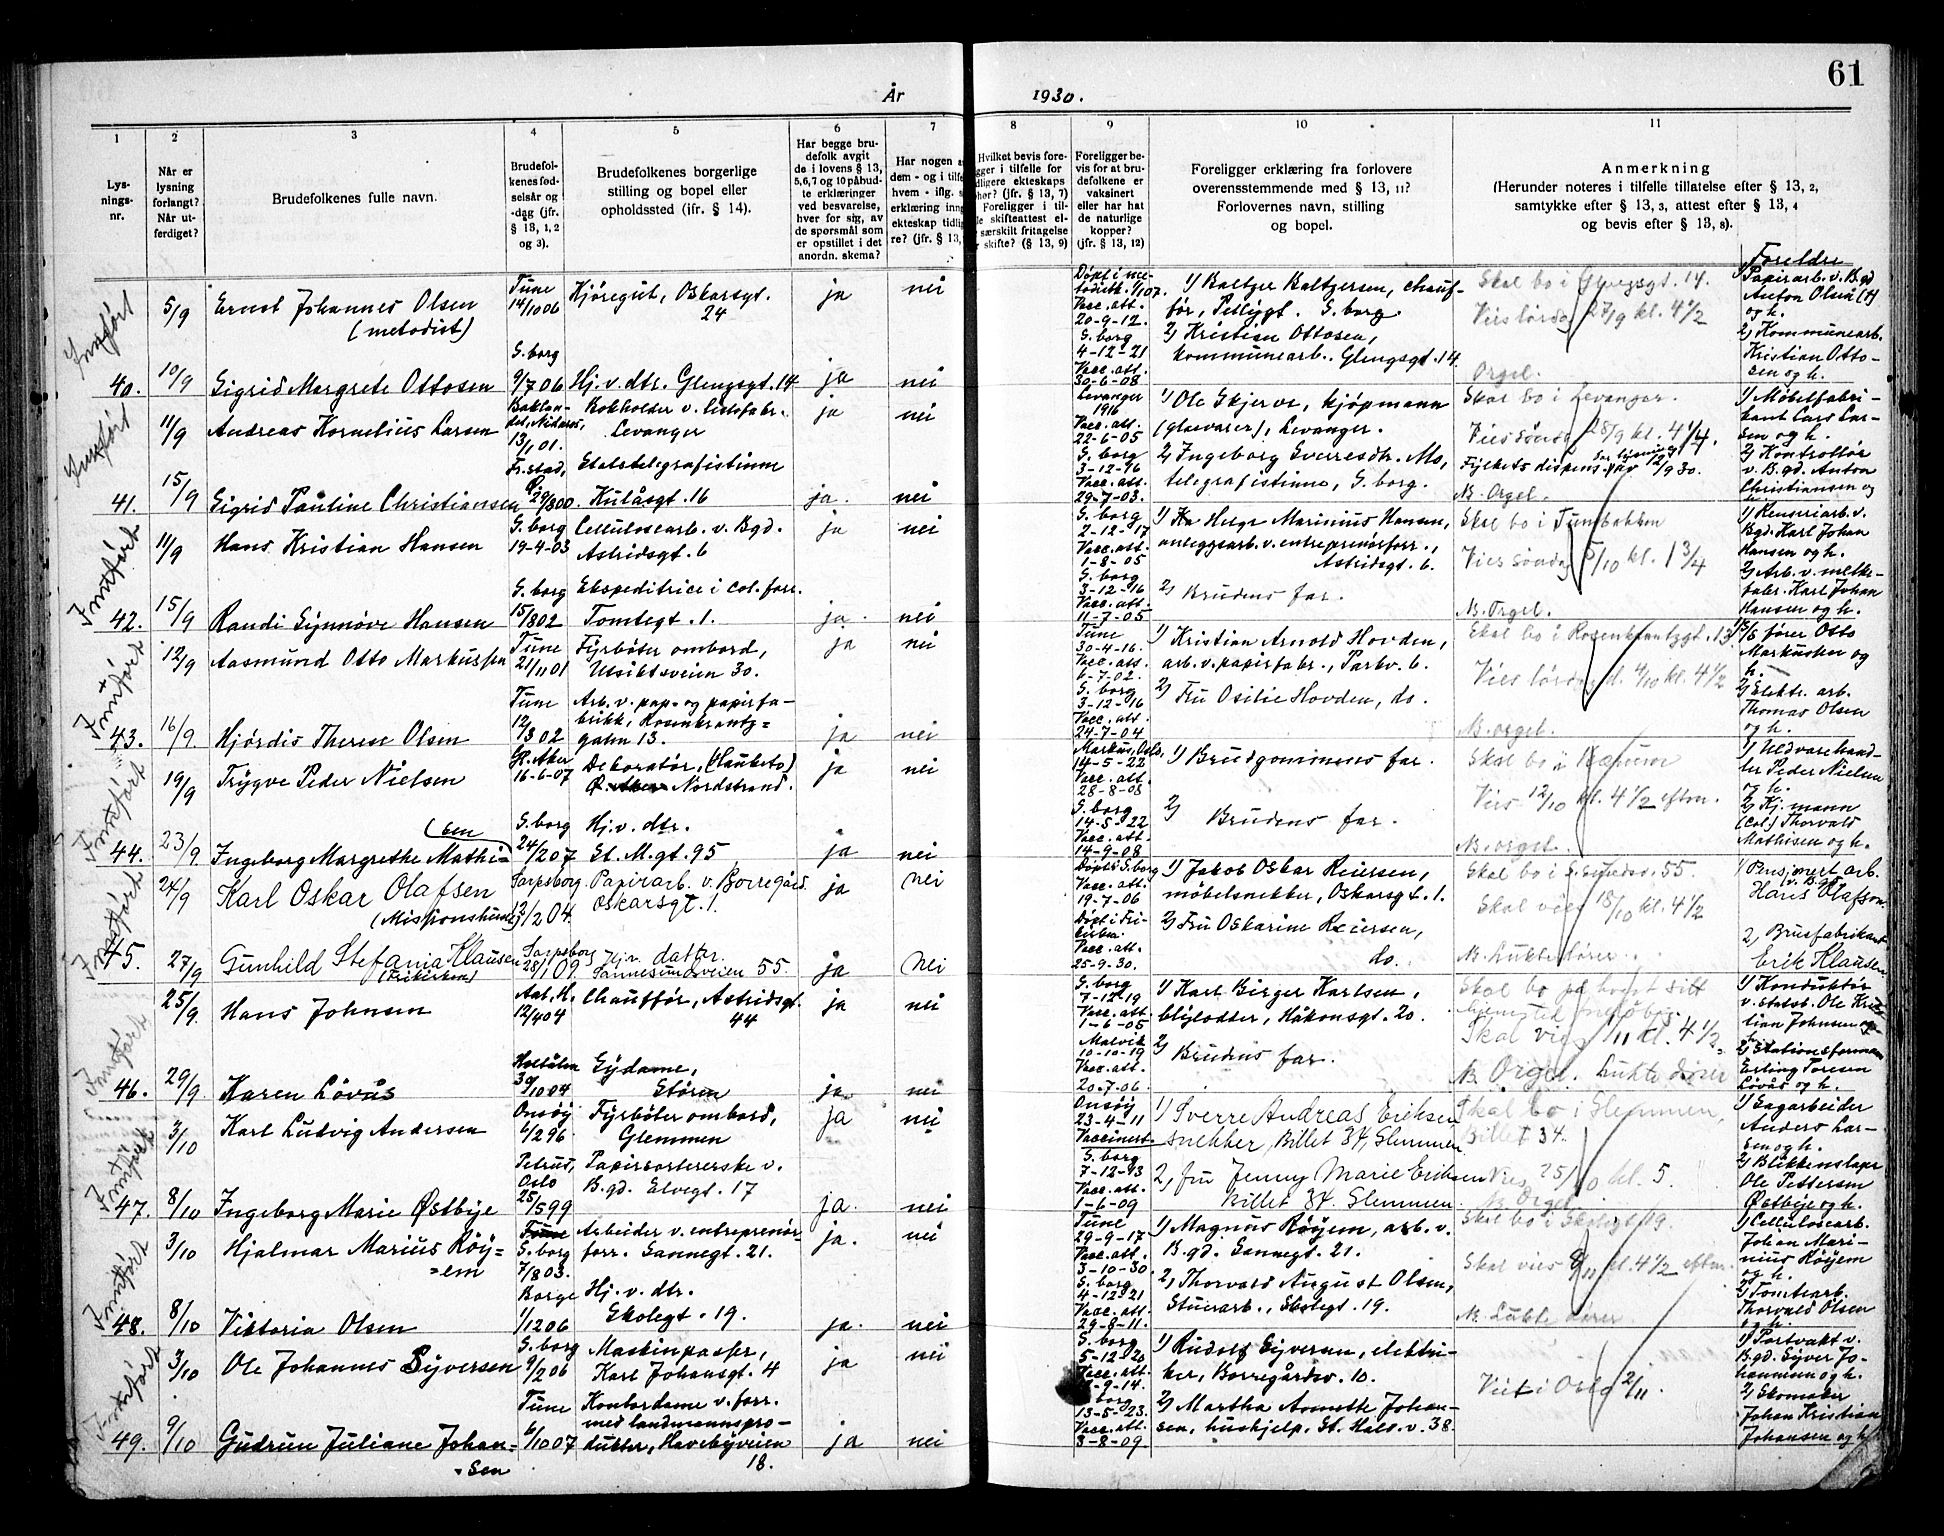 61
År 1930.
1
2
3
4
5
6
7
8
9
10
11
Lys-
nings-
nr.
Når er
lysning
forlangt?
Når ut-
ferdiget?
Brudefolkenes fulle navn.
Brudefol-
kenes fød-
selsår og
-dag (jfr.
§ 13, 1, 2
og 3).
Brudefolkenes borgerlige
stilling og bopel eller
opholdssted (ifr. § 14).
Har begge bru-
defolk avgit
de i lovens § 13,
5,6,7 og 10 påbud-
te erklæringer
ved besvarelse,
hver for sig, av
de spørsmål som
er opstillet i det
anordn. skema?
Har nogen a
dem - og i tilfe
hvem - iflg. s
erklæring inng
ekteskap tidli
re? (jfr. § 13,
Hvilket bevis fore-
gger i tilfelle for
dligere ekteskaps
hør? (jfr. § 13, 7)
Foreligger i til-
le skifteattest el-
særskilt fritagelse
skifte? (§ 13, 9)
Foreligger be-
vis for at bru-
defolkene er
vaksinert
eller har hat
de naturlige
kopper?
(jfr. § 13, 12)
Foreligger erklæring fra forlovere
overensstemmende med § 13, 11?
Forlovernes navn, stilling
og bopel.
Anmerkning
(Herunder noteres i tilfelle tillatelse efter § 13, 2,
samtykke efter § 13, 3, attest efter § 13, 4
og bevis efter § 13, 8).
Foreldre
Innført
5/9
Ernst Johannes Olsen
(metodist)
Tune
14/10 06
Kjøregut, Oskarsgt.
24
ja
nei
Vacc. att.
20-9-12.
1) Baltzer Baltzersen, chauf-
før, Pellygt. S.borg
Skal bo i Glengsgt. 14.
Vies lørdag 27/9 kl. 4 1/2
1) Papirarb. v. Bgd
Anton Olsen (†)
og h.
40.
10/9
Sigrid Margrete Ottosen
S.borg
9/7 06
Hj. v. dtr. Glengsgt. 14
ja
nei
S.borg
4-12-21
Vacc. att.
30-6-08
2) Kristian Ottosen,
kommunearb. Glengsgt. 14
Orgel.
2) Kommunearb.
Kristian Otto-
sen og h.
Innført
11/9
Andreas Kornelius Larsen
13/1 01.
Bokholder v. listefabr.
Levanger
ja
nei
Levanger
1916
Vacc. att.
22-6-05
1) Ole Skjerve, kjøpmann
(glasvarer), Levanger.
Skal bo i Levanger.
Vies sønda 28/9 kl. 4 1/4.
1) Møbelfabri-
kant Lars Lar-
sen og h.
41.
15/9
Sigrid Pauline Christiansen
Fr.stad,
Statstelegrafistinne
Kulåsgt. 16
ja.
nei
S.borg
3-12-16
Vacc. att.
29-7-03.
2) Ingeborg Sverresdtr. Mo,
telegrafistinne, S.borg.
N. Orgel.
2) Kontrollør
v. B.gd. Anton
Christiansen og
Innført
11/9
Hans Kristian Hansen
S.borg
19-4-03
Cellulosearb. v. Bgd.
Astridsgt. 6
ja
nei
S.borg
2-12-17
Vacc. att.
1-8-05
1) Helge Marinius Hansen,
anleggsarb. v. entreprenørforr.,
Astridsgt. 6.
Skal bo i Tunebakken
Vies søndag 5/10 kl. 1 3/4
Bgd. Karl Johan
Hansen og h.
42.
15/9
Randi Synnøve Hansen
S.borg
15/8 02
Ekspeditrice i col. forr.
Tomtegt. 1.
ja.
nei
S.borg
3-12-16
Vacc. att.
11-7-05
2) Brudens far.
N. Orgel.
2) Arb. v. melke-
fabr. Karl Johan
Hansen og h.
Innført
12/9
Aasmund Otto Markussen
Tune
21/11 01
Fyrbøter ombord,
Utsiktsveien 30.
ja
nei
Tune
30-4-16.
Vacc. att.
6-7-02.
1) Kristian Arnold Hovden,
arb. v. papirfabr., Parkv. 6.
Skal bo i Rosenkrantzgt. 13
Vies lørdag d. 4/10 kl. 4 1/2
fører Otto
Markussen og
h.
43.
16/9
Hjørdis Therese Olsen
Tune
12/3 02
Arb. v. pap- og papirfa-
brikk, Rosenkrantz=
gaten 13.
ja
nei
S.borg
3-12-16
Vacc. att.
24-7-04
2) Fru Osilie Hovden, do.
N. orgel.
2) Elektr. arb.
Thomas Olsen
og h.
Innført
19/9
Trygve Peder Nielsen
16-6-07
Dekoratør, (Hauketo)
Nordstrand.
ja
nei
Markus, Oslo,
14-5-22
Vacc. att.
28-8-08
1) Brudgommens far.
Skal bo i
Vies 12/10 kl. 4 1/2 eftm.
1) Uldvarehand-
ler Peder Nielsen
og h.
44.
23/9.
Ingeborg Margrethe Mathi=
(sen
S.borg
24/2 07
Hj. v. dtr.
St. M.gt. 95
ja
nei
S.borg
14-5-22
Vacc. att.
14-9-08
2) Brudens far.
N. orgel.
2) Kj.mann
(col) Thorvald
Mathisen og h.
Innført
24/9
Karl Oskar Olafsen
(Misjonshuset)
Sarpsborg.
12/2 04.
Papirarb. v. Borregård
Oskarsgt. 1.
ja
nei
Døpt i S.borg
Vacc. att.
19-7-06
1) Jakob Oskar Reiersen,
møbelsnekker, Oskarsgt. 1.
Skal vies 18/10 kl. 4 1/2
1) Pensjonert arb.
v. Bgd
Hans Olafsen.
45.
27/9
Gunhild Stefania Klausen
(Frikirken)
Sarpsborg
28/1 09.
Hjv. datter.
Sannesundveien 55.
ja
nei
Døpt i Fri-
kirken.
Vacc. att.
25-9-30.
2) Fru Oskarine Reiersen,
do.
N. Lukte dører.
2, Brusfabrikant
Erik Klausen
Innført
25/9.
Hans Johnsen
12/4 04
Chauffør, Astridsgt.
44
ja
nei
S.borg
7-12-19
Vacc. att.
1-6-05
1) Karl Birger Karlsen,
Håkonsgt. 20.
Skal vies 1/11 kl. 4 1/2
1) Konduktør
v. statsb. Ole Kris
tian Johnsen og
46.
29/9
Karen Løvås
30/10 04
Sydame,
Støren
ja
nei
Malvik
10-10-19
Vacc. att.
20-7-06.
2) Brudens far.
N. Orgel. Lukte dører
2) Stationsformann
Erling Toresen
Løvås og h.
Innført
3/10
Karl Ludvig Andersen
Onsøy
6/2 96.
Fyrbøter ombord,
Glemmen
ja
nei
Onsøy
23-4-11
Vaccinert.
1) Sverre Andreas Eriksen
snekker, Billet 34, Glemmen
Skal bo i Glemmen,
Billet 34.
1) Sagarbeider
Anders Lar-
sen og h.
47.
8/10
Ingeborg Marie Østbye
Petrus,
Oslo
25/5 99
Papirsortererske v.
B.gd. Elvegt. 17
ja.
nei
S.borg
7-12-13
Vacc. att.
1-6-09
2, Fru Jenny Marie Eriksen
Billet 34. Glemmen
Vies 25/10 kl. 5.
N. Orgel.
2) Blikkenslager
Ole Pettersen
Østbye og h.
Innført
3/10
Hjalmar Marius Røy=
=em
Tune
S.borg
7/8 03.
Arbeider v. entreprenør-
forr. Sannegt. 21.
ja.
nei
Tune
29-9-17
Vacc. att.
3-10-30.
1) Magnus Røyem, arb. v.
B.gd. Sannegt. 21.
Skal bo i Skolegt. 19.
Skal vies 8/11 kl. 4 1/2 eftm.
1) Cellulosearb.
Johan Mari-
nius Røyem
og h.
48.
8/10
Viktoria Olsen
Borge
1/12 06
Hj. v. dtr.
Skolegt. 19.
ja.
nei
S.borg
4-12-21
Vacc. att.
29-8-11.
2, Thorvald August Olsen,
Stuerarb., Skolegt. 19.
N. Lukte dører
2) Tomtearb.
Thorvald Olsen
og h.
Innført
3/10
Ole Johannes Syversen
S.borg
9/2 06
Maskinpasser,
Karl Johansgt. 4
ja
nei
S.borg
5-12-20
Vacc. att.
9-14.
1) Rudolf Syversen, elektri-
ker, Borregårdsv. 10.
Viet i Oslo 2/11.
1) Portvakt v.
B.gd. Syver Jo-
hannesen og h.
49.
9/10
Gudrun Juliane Johan=
=sen
Tune
6/10 07
Kontordame v. forr.
med landmannspro-
dukter, Havebyveien
18.
ja
nei
S.borg
13-5-23.
Vacc. att.
3-8-09.
2) Martha Annette Johan-
sen, hushjelp, St. Hals. v. 38.
2) Skomaker
Johan Kristian
Johansen og h.